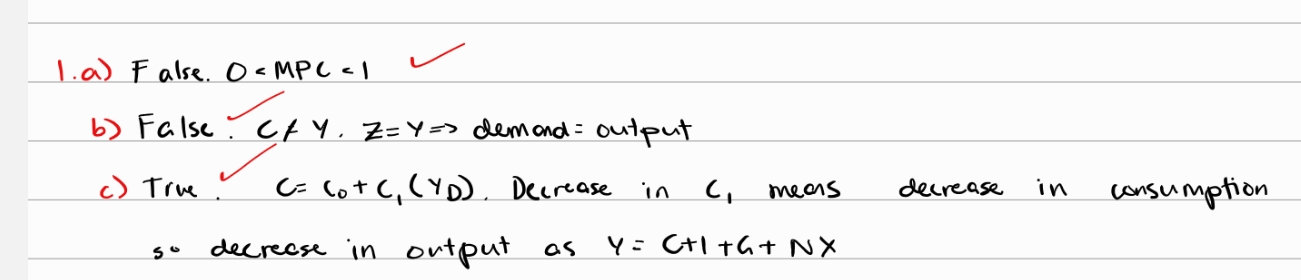 1.a) False. 0 < MPC < 1 ✓
b) False. ✓ C ≠ Y. Z = Y => demand = output
c) True. ✓ C = C₀ + C₁(Y_D). Decrease in C₁ means decrease in consumption
so decrease in output as Y = C+I+G+NX